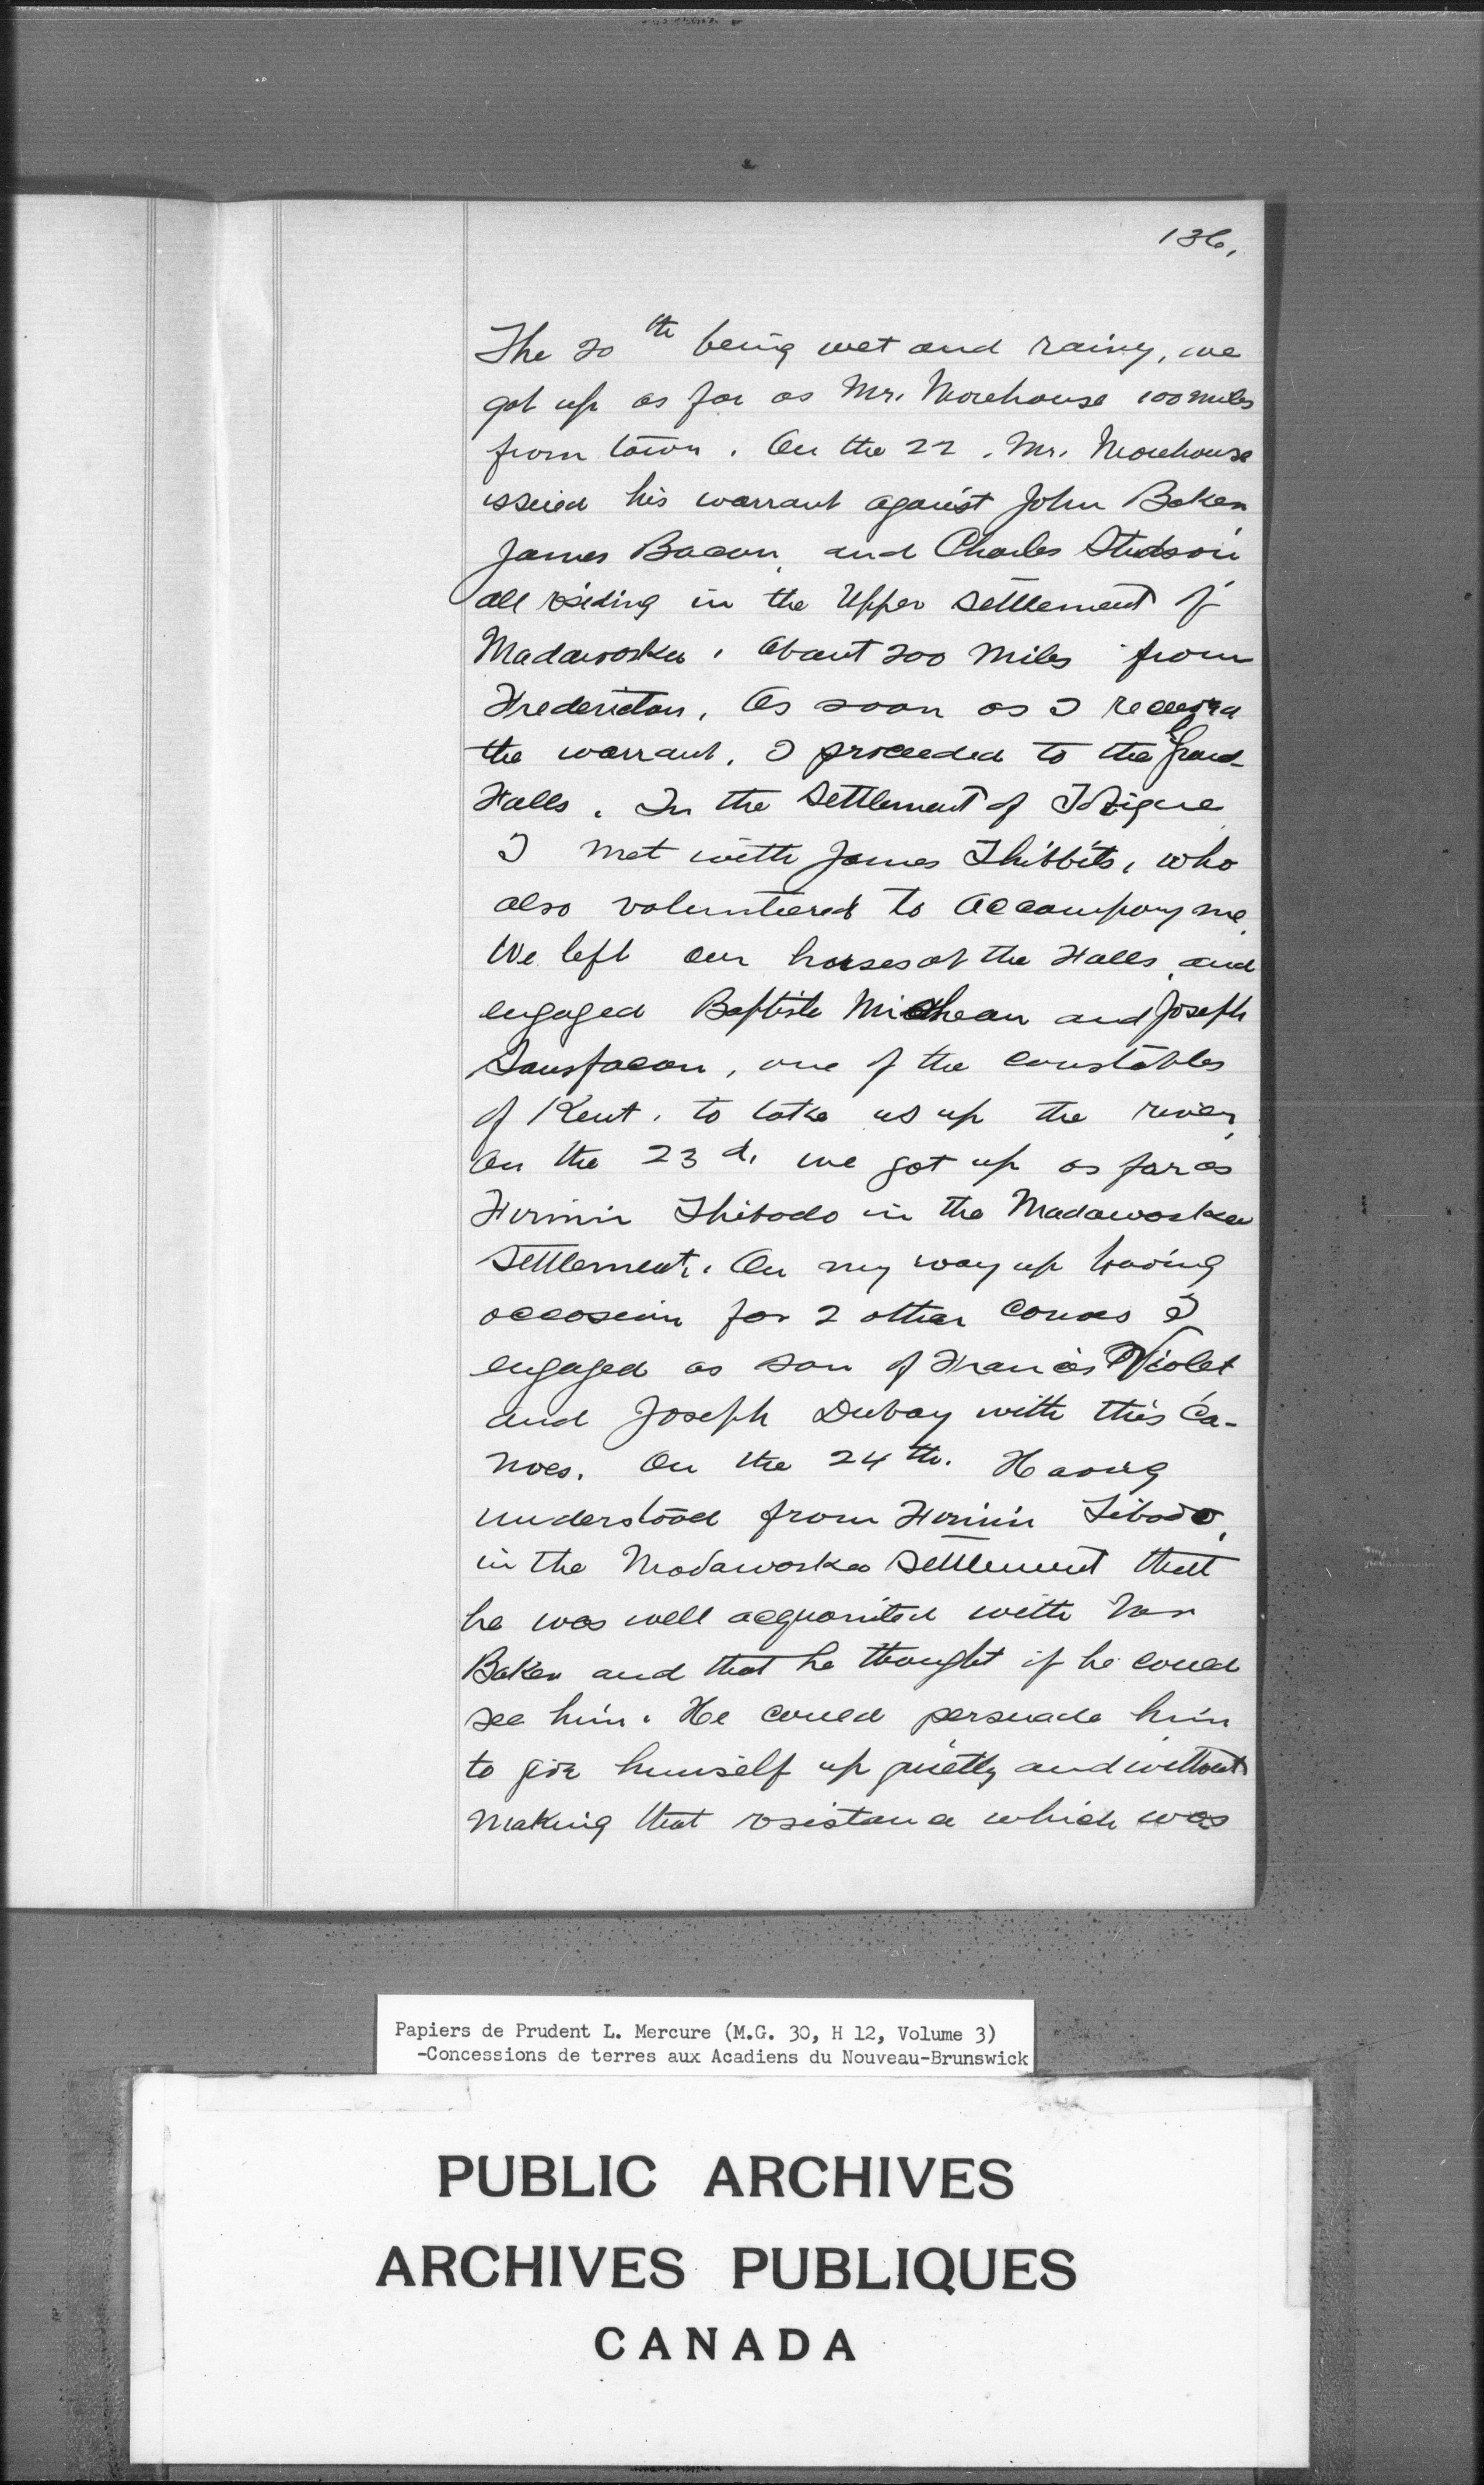 136.
The 20th being wet and rainy, we
got up as far as Mr. Morehouse 100 miles
from town. On the 22. Mr. Morehouse
issued his warrant against John Baker
James Bacon, and Charles Studson
all residing in the Upper settlement of
Madawaska. about 200 miles from
Fredericton. As soon as I received
the warrant. I proceeded to the Grand
Falls. In the Settlement of Tobique
I met with James Thibbits, who
also volunteered to accompany me.
We left our horses at the Falls, and
engaged Baptiste Michean and Joseph
Sansfacon, one of the constables
of Kent. to take us up the river.
On the 23d. we got up as far as
Firmin Thibodo in the Madawaska
Settlement. On my way up having
occasion for 2 other canoes I
engaged as son of Francis Violet
and Joseph Dubay with this Ca-
noes. On the 24th. Having
understood from Firmin Tibodo,
in the Madawaska settlement that
he was well acquainted with
Baker and that he thought if he could
see him. He could persuade him
to give himself up quietly and without
making that resistance which was
Papiers de Prudent L. Mercure (M.G. 30, H 12, Volume 3)
-Concessions de terres aux Acadiens du Nouveau-Brunswick
PUBLIC ARCHIVES
ARCHIVES PUBLIQUES
CANADA